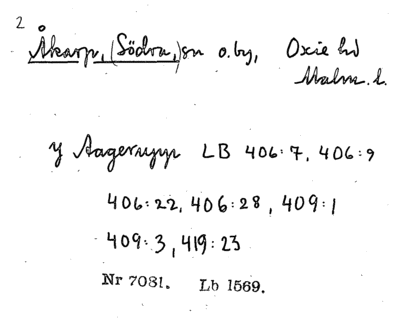 2
Åkarp, (Södra,) sn o. by, Oxie hd
Malm. l.
y Aagerupp LB 406:7, 406:9
406:22, 406:28, 409:1
409:3, 419:23
Nr 7081. Lb 1569.